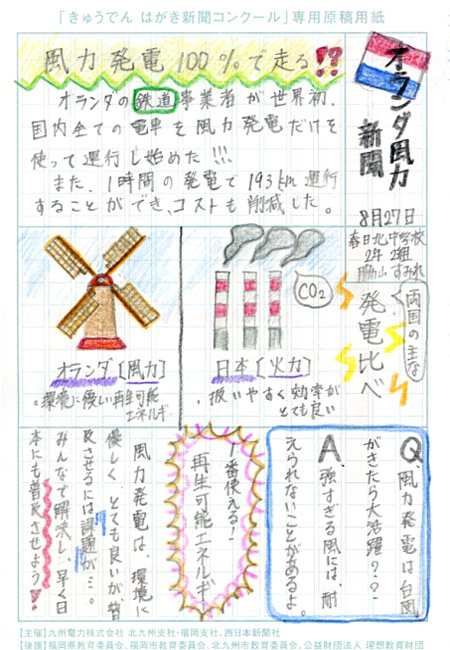 「きゅうでん はがき新聞コンクール」専用原稿用紙
オランダ風力
新聞
8月27日
春日北中学校
2年 2組
すみれ
風力発電100%で走る!!
オランダの鉄道事業者が世界初、
国内全ての電車を風力発電だけを
使って運行し始めた!!!
また、1時間の発電で193km運行
することができ、コストも削減した。
両国の主な
発電比べ
CO2
オランダ[風力]
。環境に優しい再生可能
エネルギー
日本[火力]
。扱いやすく効率が
とても良い
Q、風力発電は台風
がきたら大活躍??
A、強すぎる風には、耐
えられないことがあるよ。
1番使える!
再生可能エネルギー
風力発電は、環境に
優しく、とても良いが普
及させるには課題が…。
みんなで解決し、早く日
本にも普及させよう!
【主催】九州電力株式会社 北九州支社・福岡支社、西日本新聞社
【後援】福岡県教育委員会、福岡市教育委員会、北九州市教育委員会、公益財団法人 理想教育財団